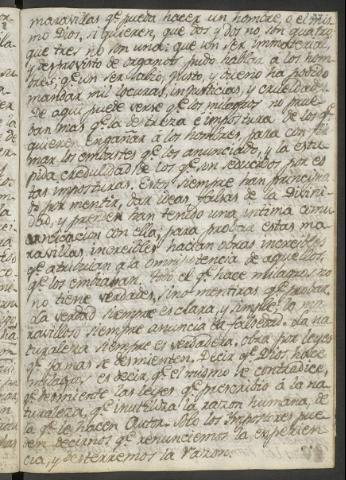 maravillas q.e pueda hacer un hombre, o el mis-
mo Dios, si quieren, que dos y dos no son quatro,
que tres no son uno: que un ser immaterial,
y desprovisto de organos pudo hablar a los hom-
bres; q.e un ser sabio, justo, y bueno ha podido
mandar mil locuras, injusticias, y crueldades.
De aqui puede verse q.e los milagros no prue-
ban mas q.e la destreza e impostura de los q.e
quieren engañar á los hombres, para con fir-
mar los embustes q.e les anunciado, y la estu-
pida credulidad de los q.e son seducidos por es-
tas imposturas. Estos siempre han principia-
do por mentir, dar ideas falsas de la Divini-
dad, y pretenden han tenido una intima comu-
nicacion con ella; para probar estas ma-
ravillas increibles hacian obras increibles
q.e atribuian á la omnipotencia de aquellos
q.e los embiaban. Todo el q.e hace milagros, no
no tiene verdades, sino mentiras que probar.
La verdad siempre es clara, y simple; lo ma-
ravilloso siempre anuncia la falsedad. La na-
turaleza siempre es verdadera, obra por leyes
q.e jamas se desmienten. Decir q.e Dios hace
milagros, es decir, q.e el mismo se contradice,
q.e desmiente las leyes q.e prescribió á la na-
turaleza, q.e inutiliza la razon humana, de
la q.e le hacen Autor. Solo los Impostores pue-
den decirnos q.e renunciemos la experien-
cia, y desterremos la razon.